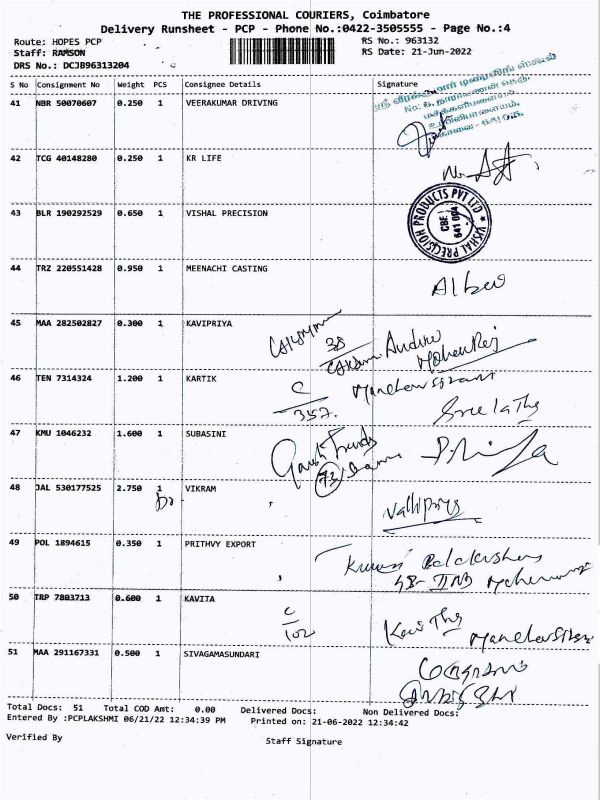 THE PROFESSIONAL COURIERS, Coimbatore
Delivery Runsheet - PCP - Phone No.:0422-3505555 - Page No.:4
Route: HOPES PCP
RS No.: 963132
Staff: RAMSON
RS Date: 21-Jun-2022
DRS No.: DCJB96313204
S No Consignment No Weight PCS Consignee Details Signature
41 NBR 50070607 0.250 1 VEERAKUMAR DRIVING
42 TCG 40148280 0.250 1 KR LIFE
43 BLR 190292529 0.650 1 VISHAL PRECISION
VISHAL PRECISION PRODUCTS PVT LTD
CBE
641 004
44 TRZ 220551428 0.950 1 MEENACHI CASTING
45 MAA 282502827 0.300 1 KAVIPRIYA
38
46 TEN 7314324 1.200 1 KARTIK
C
357.
47 KMU 1046232 1.600 1 SUBASINI
73
48 JAL 530177525 2.750 1 VIKRAM
Vallipriya
49 POL 1894615 0.350 1 PRITHVY EXPORT
50 TRP 7803713 0.600 1 KAVITA
C
102
51 MAA 291167331 0.500 1 SIVAGAMASUNDARI
Total Docs: 51 Total COD Amt: 0.00 Delivered Docs: Non Delivered Docs:
Entered By :PCPLAKSHMI 06/21/22 12:34:39 PM Printed on: 21-06-2022 12:34:42
Verified By
Staff Signature